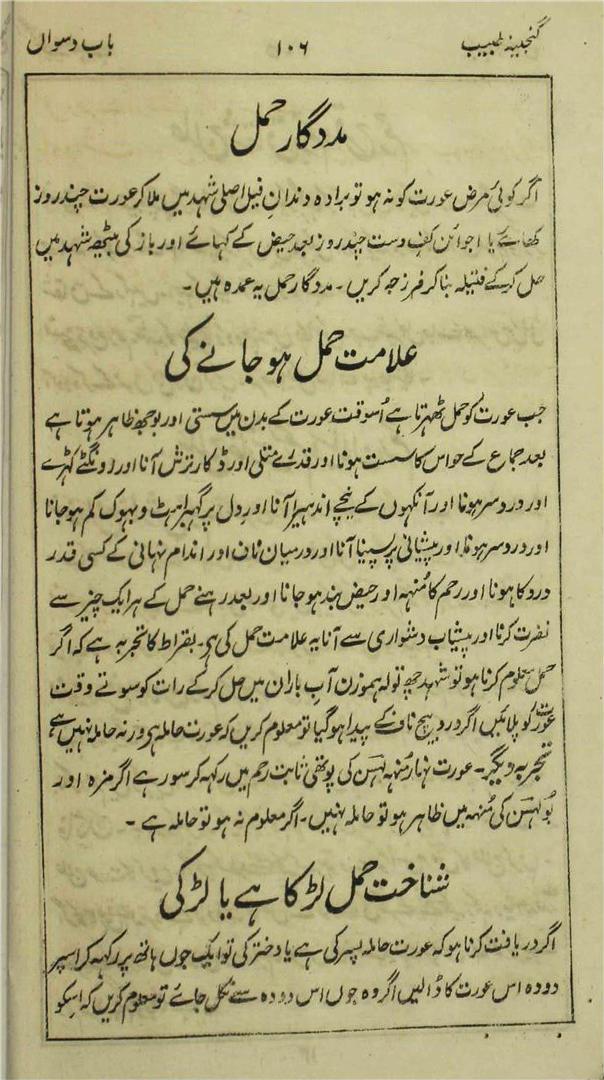 گنجینۂ طبیب ۱۰۶ باب دسواں
مددگار حمل
اگر کوئی مرض عورت کو نہ ہو تو برادہ دندان فیل اصلی شہد میں ملا کر عورت چند روز
کھائے یا اجوائن کف دست چند روز بعد حیض کے کہائے اور باز کی بیٹھہ شہد میں
حل کرکے فتیلہ بنا کر فرزجہ کریں ۔ مددگار حمل یہ عمدہ ہیں ۔
علامت حمل ہو جانے کی
جب عورت کو حمل ٹھہرتا ہے اُسوقت عورت کے بدن میں سستی اور بوجھ ظاہر ہوتا ہے
بعد جماع کے حواس کا سست ہونا اور قدرے متلی اور ڈکار ترش آنا اور رونگٹے کہڑے
اور درد سر ہونا اور آنکہوں کے نیچے اندہیرا آنا اور دل پر گہبراہٹ و بہوک کم ہو جانا
اور درد سر ہونا اور پیشانی پر پسینا آنا اور درمیان ناف اور اندام نہانی کے کسی قدر
درد کا ہونا اور رحم کا مُنہہ اور حیض بند ہو جانا اور بعد رہنے حمل کے ہر ایک چیز سے
نفرت کرنا اور پیشاب دشواری سے آنا یہ علامت حمل کی ہی ۔ بقراط کا تجربہ ہے کہ اگر
حمل معلوم کرنا ہو تو شہد چھ تولہ ہموزن آب باران میں حل کرکے رات کو سوتے وقت
عورت کو پلائیں اگر درد بیچ ناف کے پیدا ہو گیا تو معلوم کریں کہ عورت حاملہ ہی ورنہ حاملہ نہیں ہے
تجربہ دیگر ۔ عورت نہار مُنہہ لہسن کی پوتھی ثابت رحم میں رکہہ کر سو رہے اگر مزہ اور
بُو لہسن کی مُنہہ میں ظاہر ہو تو حاملہ نہیں ۔ اگر معلوم نہ ہو تو حاملہ ہے ۔
شناخت حمل لڑکا ہے یا لڑکی
اگر دریافت کرنا ہو کہ عورت حاملہ پسر کی ہے یا دختر کی تو ایک جوں ہاتھ پر رکہہ کر اسپر
دودہ اس عورت کا ڈالیں اگر وہ جوں اس دودہ سے نکل جائے تو معلوم کریں کہ اسکو